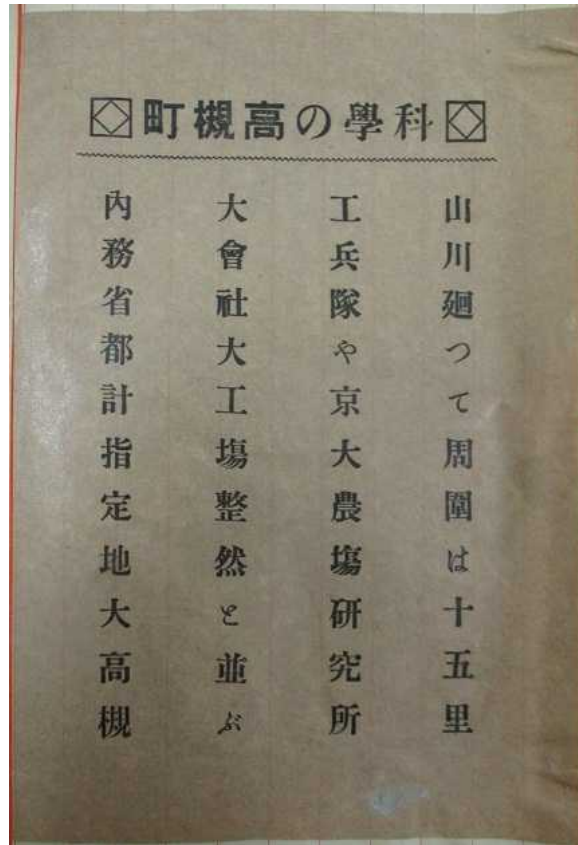 科學の高槻町
山川廻つて周圍は十五里
工兵隊や京大農塲研究所
大會社大工塲整然と並ぶ
內務省都計指定地大高槻